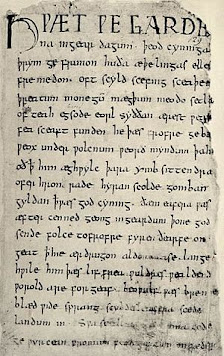 HǷÆT ǷE GARDE
na ingear dagum. þeod cyninga
þrym ge frunon huða æþelingas elle
fre medon. oft scyld scefing sceaþe
þreatum monegū mægþum meodo setla
of teah egsode eorl syððan ærest ƿear
fea sceaft funden he þæs frofre geba
ƿeox under ƿolcnum ƿeorð myndum þah
oð þ̄ him æghƿylc þara ymb sittendra
ofer hron rade hyran scolde gomban
gyldan þ̄ ƿæs god cyning. ðæm eafera ƿæs
æfter cenned geong ingeardum þone god
sende folce tofrofre fyren ðearfe on
geat þ̄ hie ær drugon aldor ase. lange
hƿile him þæs lif frea ƿuldres ƿealdend
ƿorold are for geaf. beoƿulf ƿæs breme
blæd ƿide sprang scyldes eafera scede
landum in. Sƿa sceal uma gode
ge ƿyrcean fromum